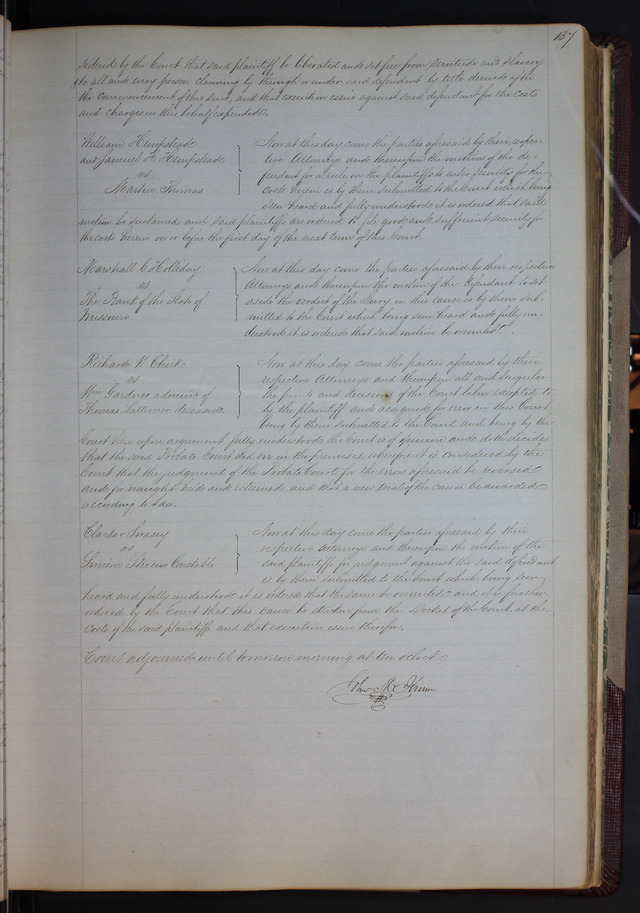 137
dered by the Court that said plaintiff be liberated and set free from servitude and slavery
to all and every person claiming by through or under said defendant by title derived after
the commencement of this suit, and that execution issue against said defendant for the costs
and charges in this behalf expended.
William Hempstead
and Samuel H Hempstead
vs
Martin Thomas
Now at this day come the parties aforesaid by their respec-
tive Attorneys and thereupon the motion of the de-
fendant for a rule on the plaintiffs to enter security for the
costs herein is by them submitted to the Court which being
seen heard and fully understood it is ordered that said
motion be sustained and said plaintiffs are ordered to file good and sufficient security for
the costs herein on or before the first day of the next term of this Court.
Marshall C Holliday
vs
The Bank of the State of
Missouri
Now at this day come the parties aforesaid by their respective
Attorneys and thereupon the motion of the Defendant to set
aside the verdict of the Jury in this cause is by them sub-
mitted to the Court which being seen heard and fully un-
derstood it is ordered that said motion be overruled
Richard W Chick
vs
Wm Gardner admin'r of
Thomas deceased
Now at this day come the parties aforesaid by their
respective Attorneys and thereupon all and singular
the points and decisions of the Court below excepted to
by the plaintiff and assigned for error in this Court
being by them submitted to the Court and being by the
Court here upon argument fully understood the Court is of opinion and doth decide
that the said Probate Court did err in the premises, wherefore it is considered by the
Court that the judgment of the Probate Court for the errors aforesaid be reversed
and for naught held and esteemed and that a new trial of the cause be awarded
according to law.
Clardo Swasey
vs
Stevens Constable
Now at this day come the parties aforesaid by their
respective Attorneys and thereupon the motion of the
said plaintiffs for judgment against the said defendant
is by them submitted to the Court which being seen
heard and fully understood it is ordered that the same be overruled and it is further
ordered by the Court that this cause be stricken from the Docket of the Court at the
costs of the said plaintiffs and that execution issue therefor.
Court adjourned until tomorrow morning at ten oclock
Jno M Krum